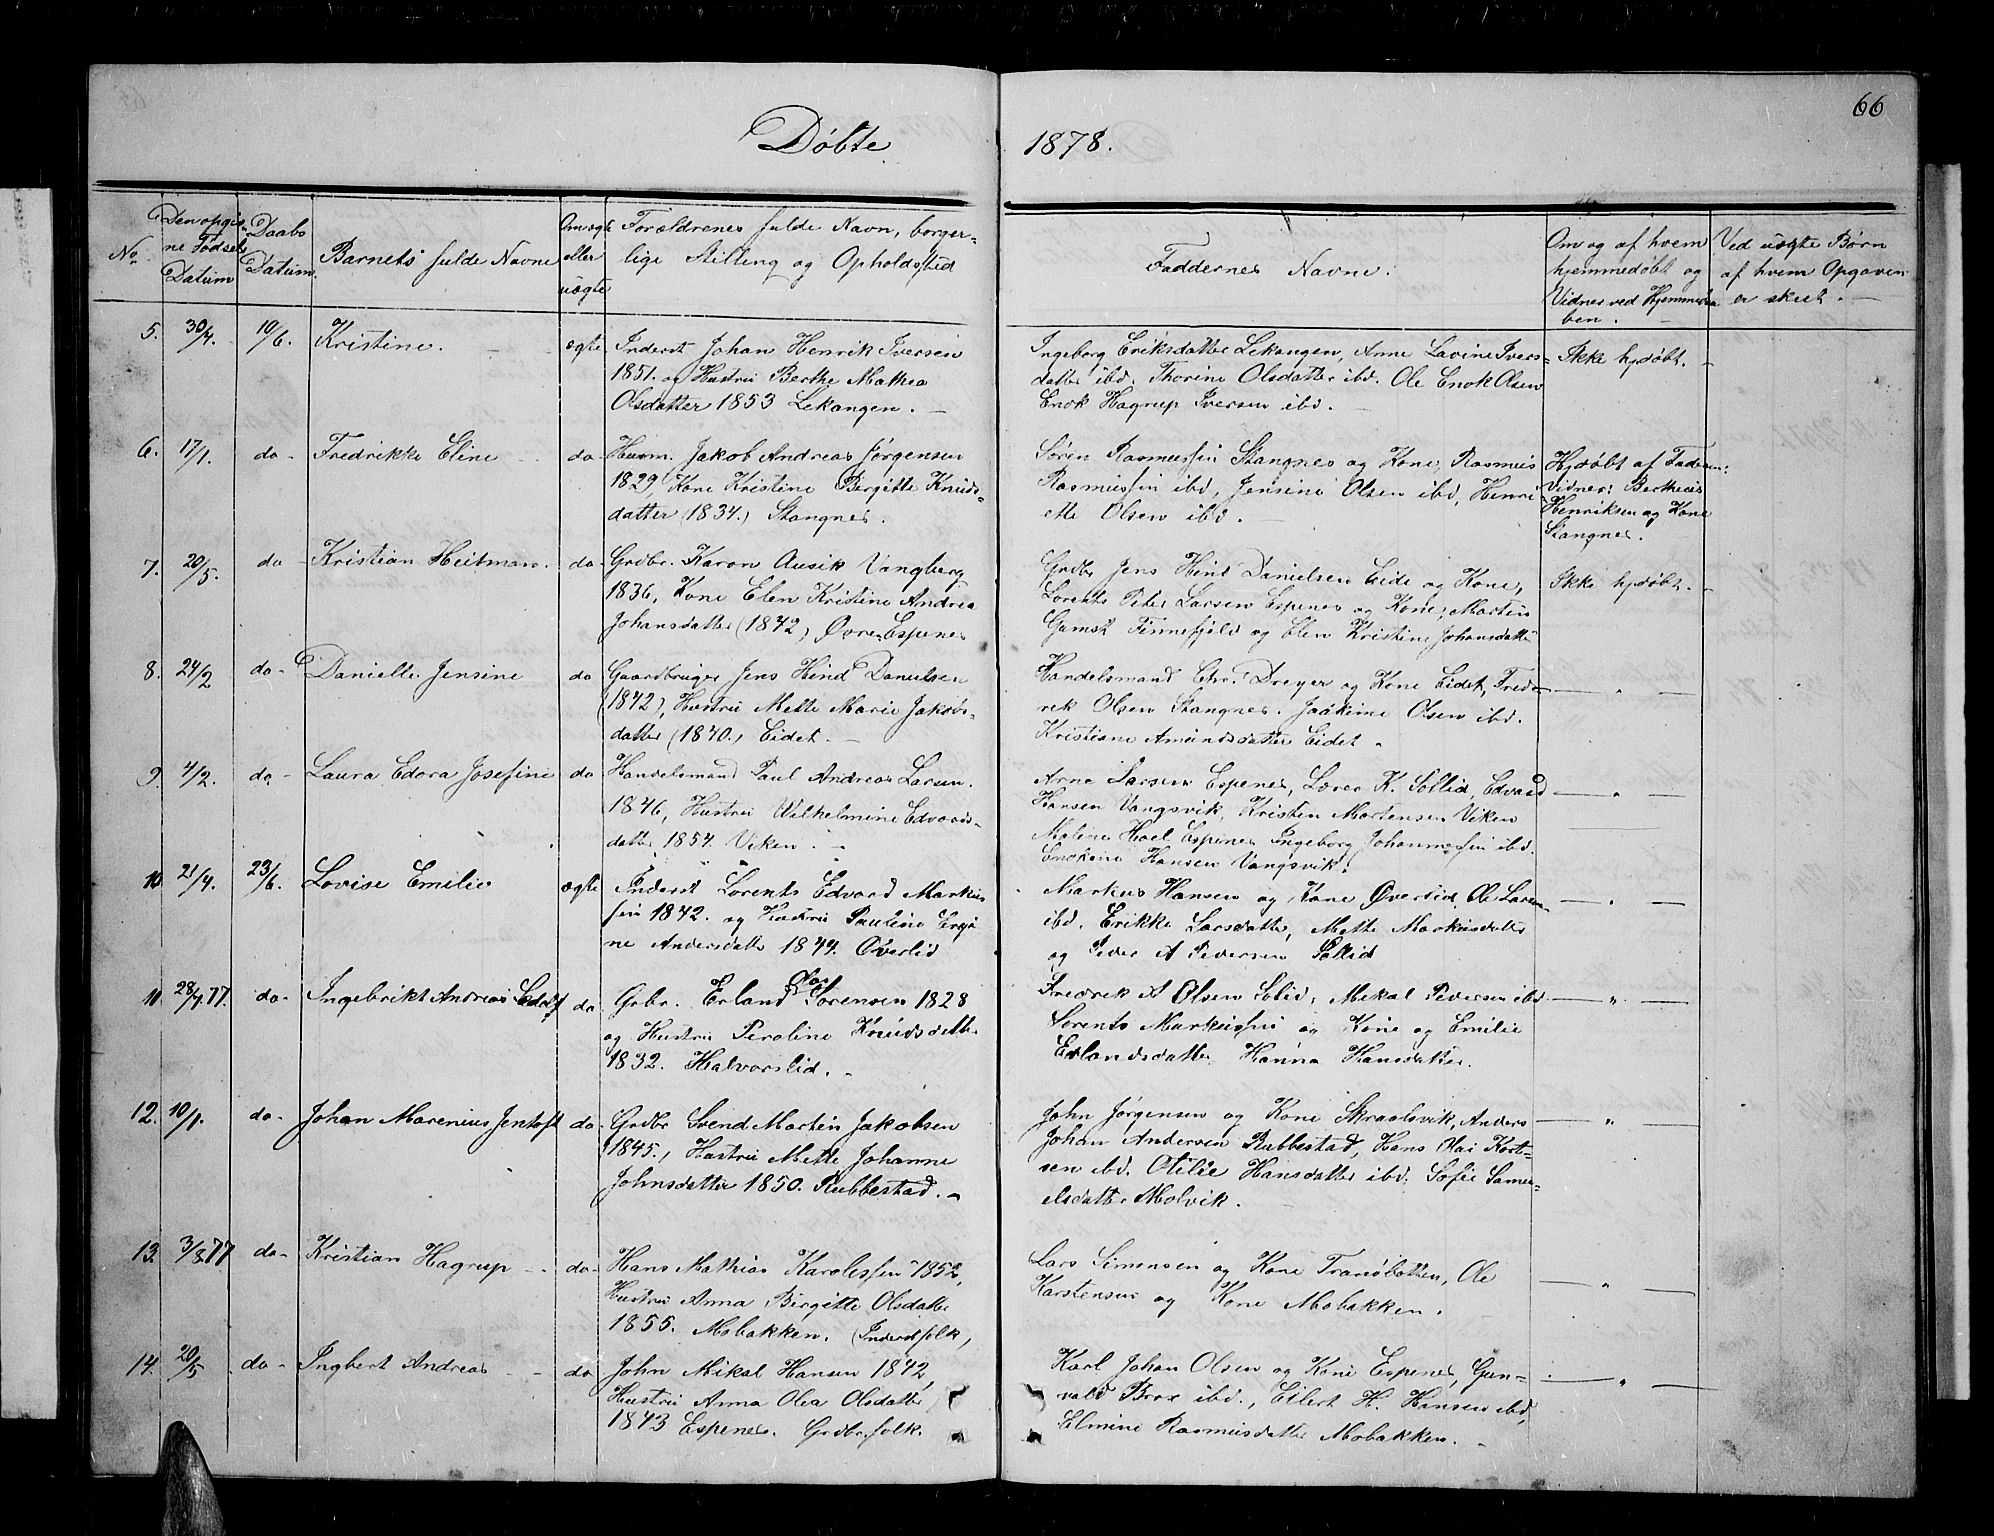 66
Døbte
1878.
No.
Den opgivne Fødsels Datum
Daabs Datum
Barnets fulde Navne
Om ægte eller uægte
Forældrenes fulde Navn, borger-
lige Stilling og Opholdsted
Faddernes Navne.
Om og af hvem
hjemmedøbt og
Vidner ved Hjemmedaa
ben.
Ved uægte Børn
af hvem Opgaven
er skeet.
5. 30/4. 10/6. Kristine. ægte
Inderst Johan Henrik Iversen
1851. og Hustru Berthe Mathea
Olsdatter 1853 Lekangen.
Ingeborg Eriksdatter Lekangen, Anne Lavine Ivers-
datter ibd. Thorine Olsdatter ibd. Ole Enok Olsen
Enok Hagrup Iversen ibd.
Ikke hjdøbt.
6. 17/1. do- Fredrikke Eline do-
Huusm. Jakob Andreas Jørgensen
1829, Kone Kristine Bergitte Knuds-
datter (1834.) Stangnes.
Søren Rasmussen Stangnes og Kone, Rasmus
Rasmussen ibd, Jensine Olsen ibd, Henri
ette Olsen ibd.
Hjdøbt af Faderen:
Vidner: Bertheus
Henriksen og Kone
Stangnes.
7. 20/5. do- Kristian Heitman. do-
Grdbr. Karon Ausik Vangberg
1836, Kone Elen Kristine Andrea
Johansdatter (1842) Øvre Espenes
Grdbr Jens Hind Danielsen Eide og Kone,
Lorents Peter Larsen Espenes og Kone, Martin
Gamst Finnefjeld og Elen Kristine Johansdatter
Ikke hjdøbt.
8. 24/2 do- Danielle Jensine do
Gaardbruger Jens Hind Danielsen
(1842), Hustru Mette Marie Jakobs-
datter (1840.) Eidet.
Handelsmand Chr. Dreyer og Kone Eidet, Fred-
rik Olsen Stangnes. Joakime Olsen ibd.
Kristiane Amundsdatter Eidet.
— " —
9. 4/2. do- Laura Edora Josefine do
Handelsmand Paul Andreas Larsen.
1846, Hustru Wilhelmine Edvards-
datter 1854. Viken.
Arne Larsen Espenes, Lærer K. Sollid, Edvard
Hansen Vangsvik, Kristen Mortensen Viken
Maline Hoel Espenes Ingeborg Johannessen ibd.
Enokine Hansen Vangsvik.
— " —
10 21/4. 23/6. Lovise Emilie ægte
Inderst Lorents Edvard Markus
sen 1842. og Hustru Pauline Ergi
ne Andersdatter 1844. Øverlid
Markus Hansen og Kone Øverlid, Ole Larsen
ibd. Erikke Larsdatter, Mette Markusdatter
og Peder A Pedersen Sollid
— " —
11. 28/7.77. do- Ingebrikt Andreas do
Grbr. Erland Olai Sørensen 1828
og Hustru Peroline Knudsdatter
1832. Halvorslid.
Fredrik A Olsen Solid, Mikal Pedersen ibd
Lorents Markussen og Kone og Emilie
Erlandsdatter Hanna Hansdatter.
— " —
12. 10/1. do- Johan Marenius Jentoft do-
Grdbr Svend Martin Jakobsen
1845., Hustru Mette Johanne
Johnsdatter 1850. Rubbestad.
John Jørgensen og Kone Skraalsvik, Anders
Johan Andersen Rubbestad, Hans Olai Kort-
sen ibd. Otilie Hansdatter ibd. Sofie Samu-
elsdatter Molvik.
— " —
13. 3/8.77 do- Kristian Hagrup do-
Hans Mathias Karolissen 1852,
Hustru Anna Birgitte Olsdatter
1855. Mobakken. (Inderstfolk,
Lars Simensen og Kone Tranøbotten, Ole
Karstensen og Kone Mobakken.
— " —
14. 20/5 do- Ingbert Andreas do
John Mikal Hansen 1842,
Hustru Anna Olea Olsdatter
1843 Espenes. Grdbr.folk.
Karl Johan Olsen og Kone Espenes, Gun-
vald Brox ibd., Eilert H. Hansen ibd,
Elmine Rasmusdatter Mobakken.
— " —